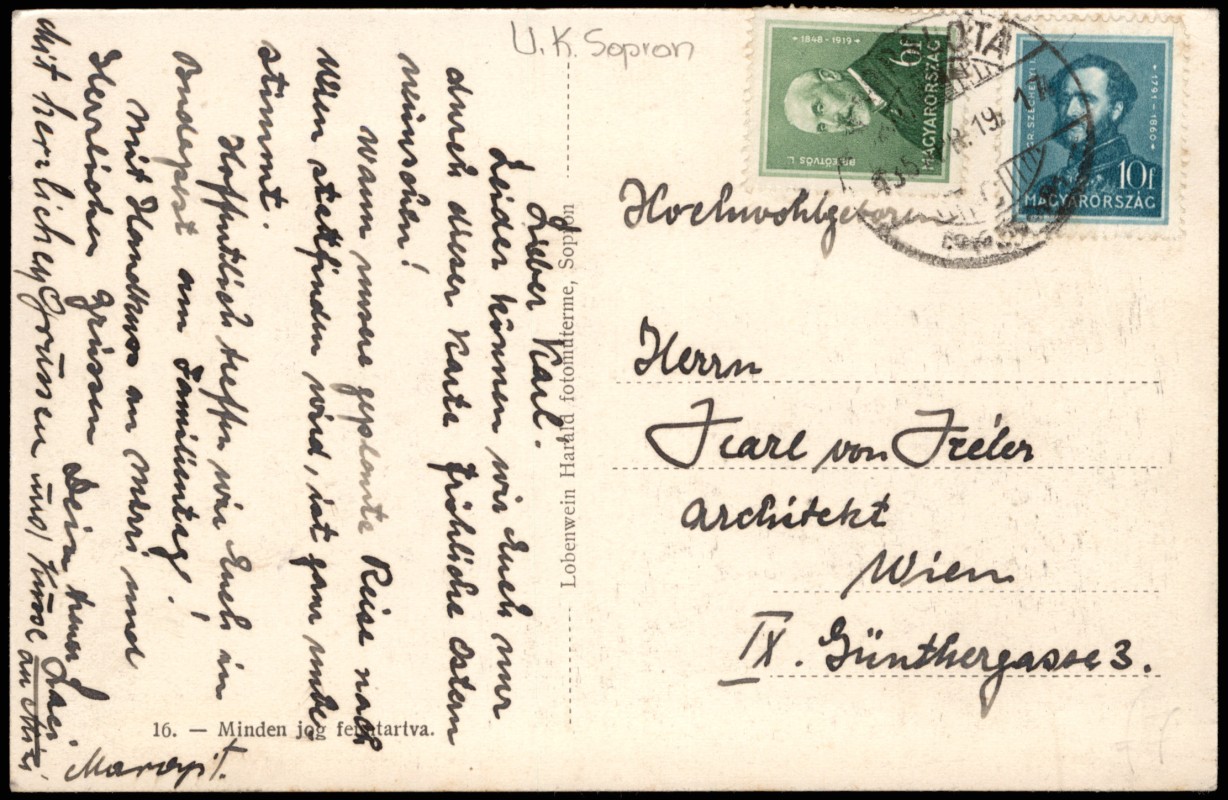 U.K. Sopron
1848-1919
6f
MAGYARORSZÁG
BR. EÖTVÖS L.
GR. SZÉCHENYI
1791-1860
10f
MAGYARORSZÁG
Lieber Karl.
Leider können wir Euch nur
durch dieser Karte fröhliche Ostern
wünschen!
Wann unsere geplante Reise nach
Wien stattfinden wird, ist ganz unbe
stimmt.
Hoffentlich treffen wir Euch in
Budapest am Familientag!
Mit Handkuss an und
Herzlichen Grüssen Dein treuer
mit herzlichen Grüssen und Küsse an
Margit.
Lobenwein Harald fotomüterme, Sopron
16. — Minden jog fenntartva.
Hochwohlgeboren
Herrn
Karl von
Architekt
Wien
IX. Günthergasse 3.